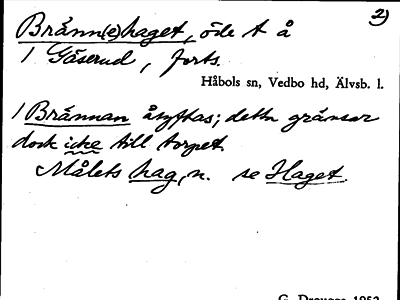 2)
Bränn(e)haget, öde t å
1 Gäserud, forts.
Håbols sn, Vedbo hd, Älvsb. l.
1 Brännan åsyftas; detta gränsar
dock icke till torpet.
Målets hag, n. se Haget.